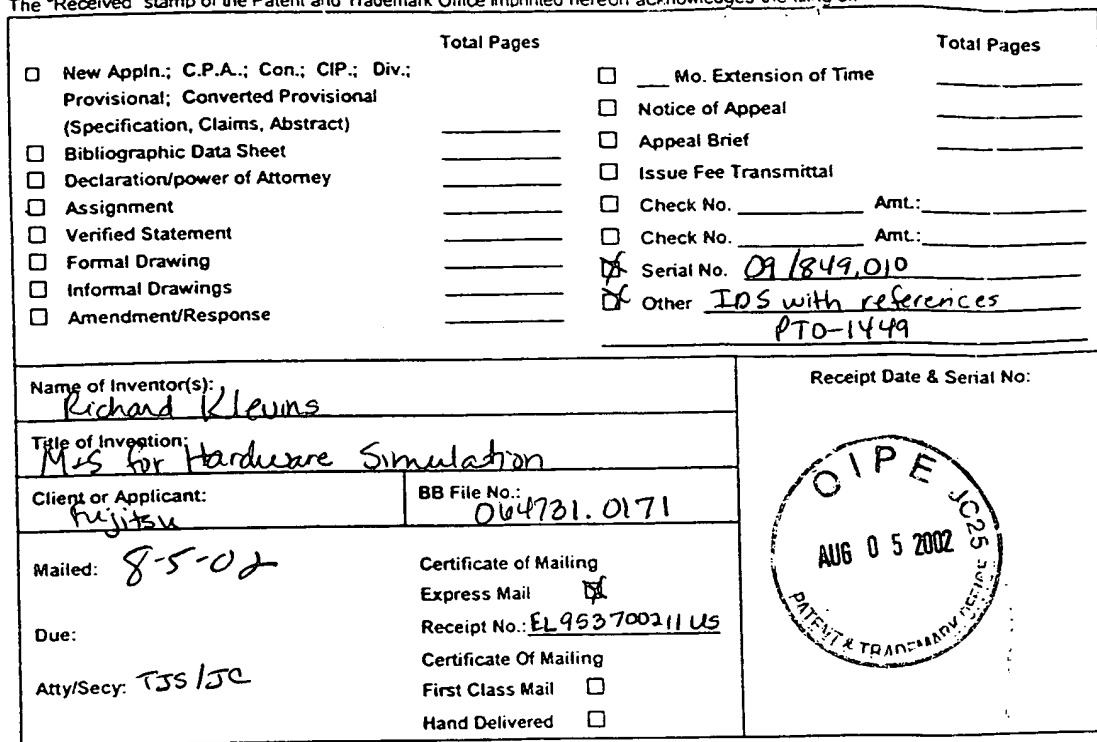 The "Received" stamp of the Patent and Trademark Office imprinted hereon acknowledges the filing of:
Total Pages
☐ New Appln.; C.P.A.; Con.; CIP.; Div.;
Provisional; Converted Provisional
(Specification, Claims, Abstract)
☐ Bibliographic Data Sheet
☐ Declaration/power of Attorney
☐ Assignment
☐ Verified Statement
☐ Formal Drawing
☐ Informal Drawings
☐ Amendment/Response
Total Pages
☐ ___ Mo. Extension of Time
☐ Notice of Appeal
☐ Appeal Brief
☐ Issue Fee Transmittal
☐ Check No. ________ Amt.: ________
☐ Check No. ________ Amt.: ________
☒ Serial No. 09/849,010
☒ Other IDS with references
PTO-1449
Name of Inventor(s):
Richard Klevins
Title of Invention:
M+S for Hardware Simulation
Client or Applicant:
Fujitsu
BB File No.:
064731.0171
Mailed: 8-5-02
Due:
Atty/Secy: TJS/JC
Certificate of Mailing
Express Mail ☒
Receipt No.: EL953700211US
Certificate Of Mailing
First Class Mail ☐
Hand Delivered ☐
Receipt Date & Serial No:
OIPE JC25
AUG 05 2002
PATENT & TRADEMARK OFFICE